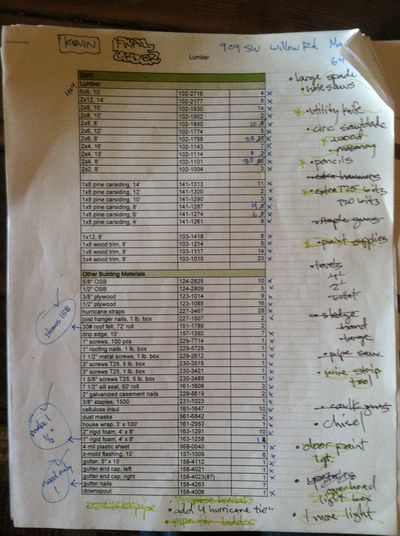 KEVIN
FINAL ORDER
909 SW Willow Rd
Lumber
Item
Lumber
6x6, 10' 102-2716 4 x
2x12, 14' 102-2177 8 x
2x8, 16' 102-1930 14 x
2x8, 10' 102-1902 2 x
2x6, 8' 102-1890 x
2x6, 12' 102-1774 5 x
2x6, 8' 102-1758 x
2x4, 16' 102-1143 7 x
2x4, 10' 102-1114 x
2x4, 8' 102-1101 x
2x2, 8' 102-1004 3 x
1x8 pine carsiding, 14' 141-1313 11 x
1x8 pine carsiding, 12' 141-1300 2 x
1x8 pine carsiding, 10' 141-1290 3 x
1x8 pine carsiding, 8' 141-1287 x
1x6 pine carsiding, 6' 141-1274 x
1x6 pine carsiding, 4' 141-1261 8 x
1x12, 8' 103-1418 8 x
1x8 wood trim, 8' 103-1214 5 x
1x6 wood trim, 8' 103-1117 14 x
1x4 wood trim, 8' 103-1010 23 x
Other Building Materials
5/8" OSB 124-2825 10 x
1/2" OSB 124-2809 5 x
3/8" plywood 123-1014 9 x
1/2" plywood 123-1085 16 x
hurricane straps 227-3467 28 x
joist hanger nails, 1 lb. box 227-1507 2 x
30# roof felt, 72' roll 151-1789 2 x
drip edge, 10' 157-1392 7 x
1" screws, 100 pcs 229-7714 1 x
1" roofing nails, 1 lb. box 229-5729 1 x
1 1/2" metal screws, 1 lb. box 229-2612 1 x
3" screws T25, 5 lb. box 230-3518 1 x
3" screws T25, 1 lb. box 230-3421 1 x
1 5/8" screws T25, 5 lb. box 230-3489 1 x
7 1/2' sill seal, 50' roll 161-1608 3 x
2" galvanized casement nails 229-5619 2 x
3/8" staples, 1500 231-1023 1 x
cellulose insul 161-1647 10 x
dust masks 561-6842 2 x
house wrap, 3' x 100' 161-2953 1 x
2" rigid foam, 4' x 8' 163-1291 10 x
1" rigid foam, 4' x 8' 163-1258 x
4 mil plastic sheet 568-0040 1 x
z-mold flashing, 10' 157-1009 6 x
gutter, 5" x 15' 158-4112 1 x
gutter end cap, left 158-4021 1 x
gutter end cap, right 158-4023(8?) 1 x
gutter nails 158-4263 7
downspout 158-4006 1 x
• large spade
• hole saws
• utility knife
• circ sawblade
wood
masonry
• pencils
extra hammers
• extra T25 bits
T20 bits
staple guns
• paint supplies
• levels
4'
2'
• sledge
hand
large
• pipe saw
• wire strip tool
caulk guns
• chisel
• door paint
light box
• 1 more light
• add 4 hurricane ties
• pipe for ladder